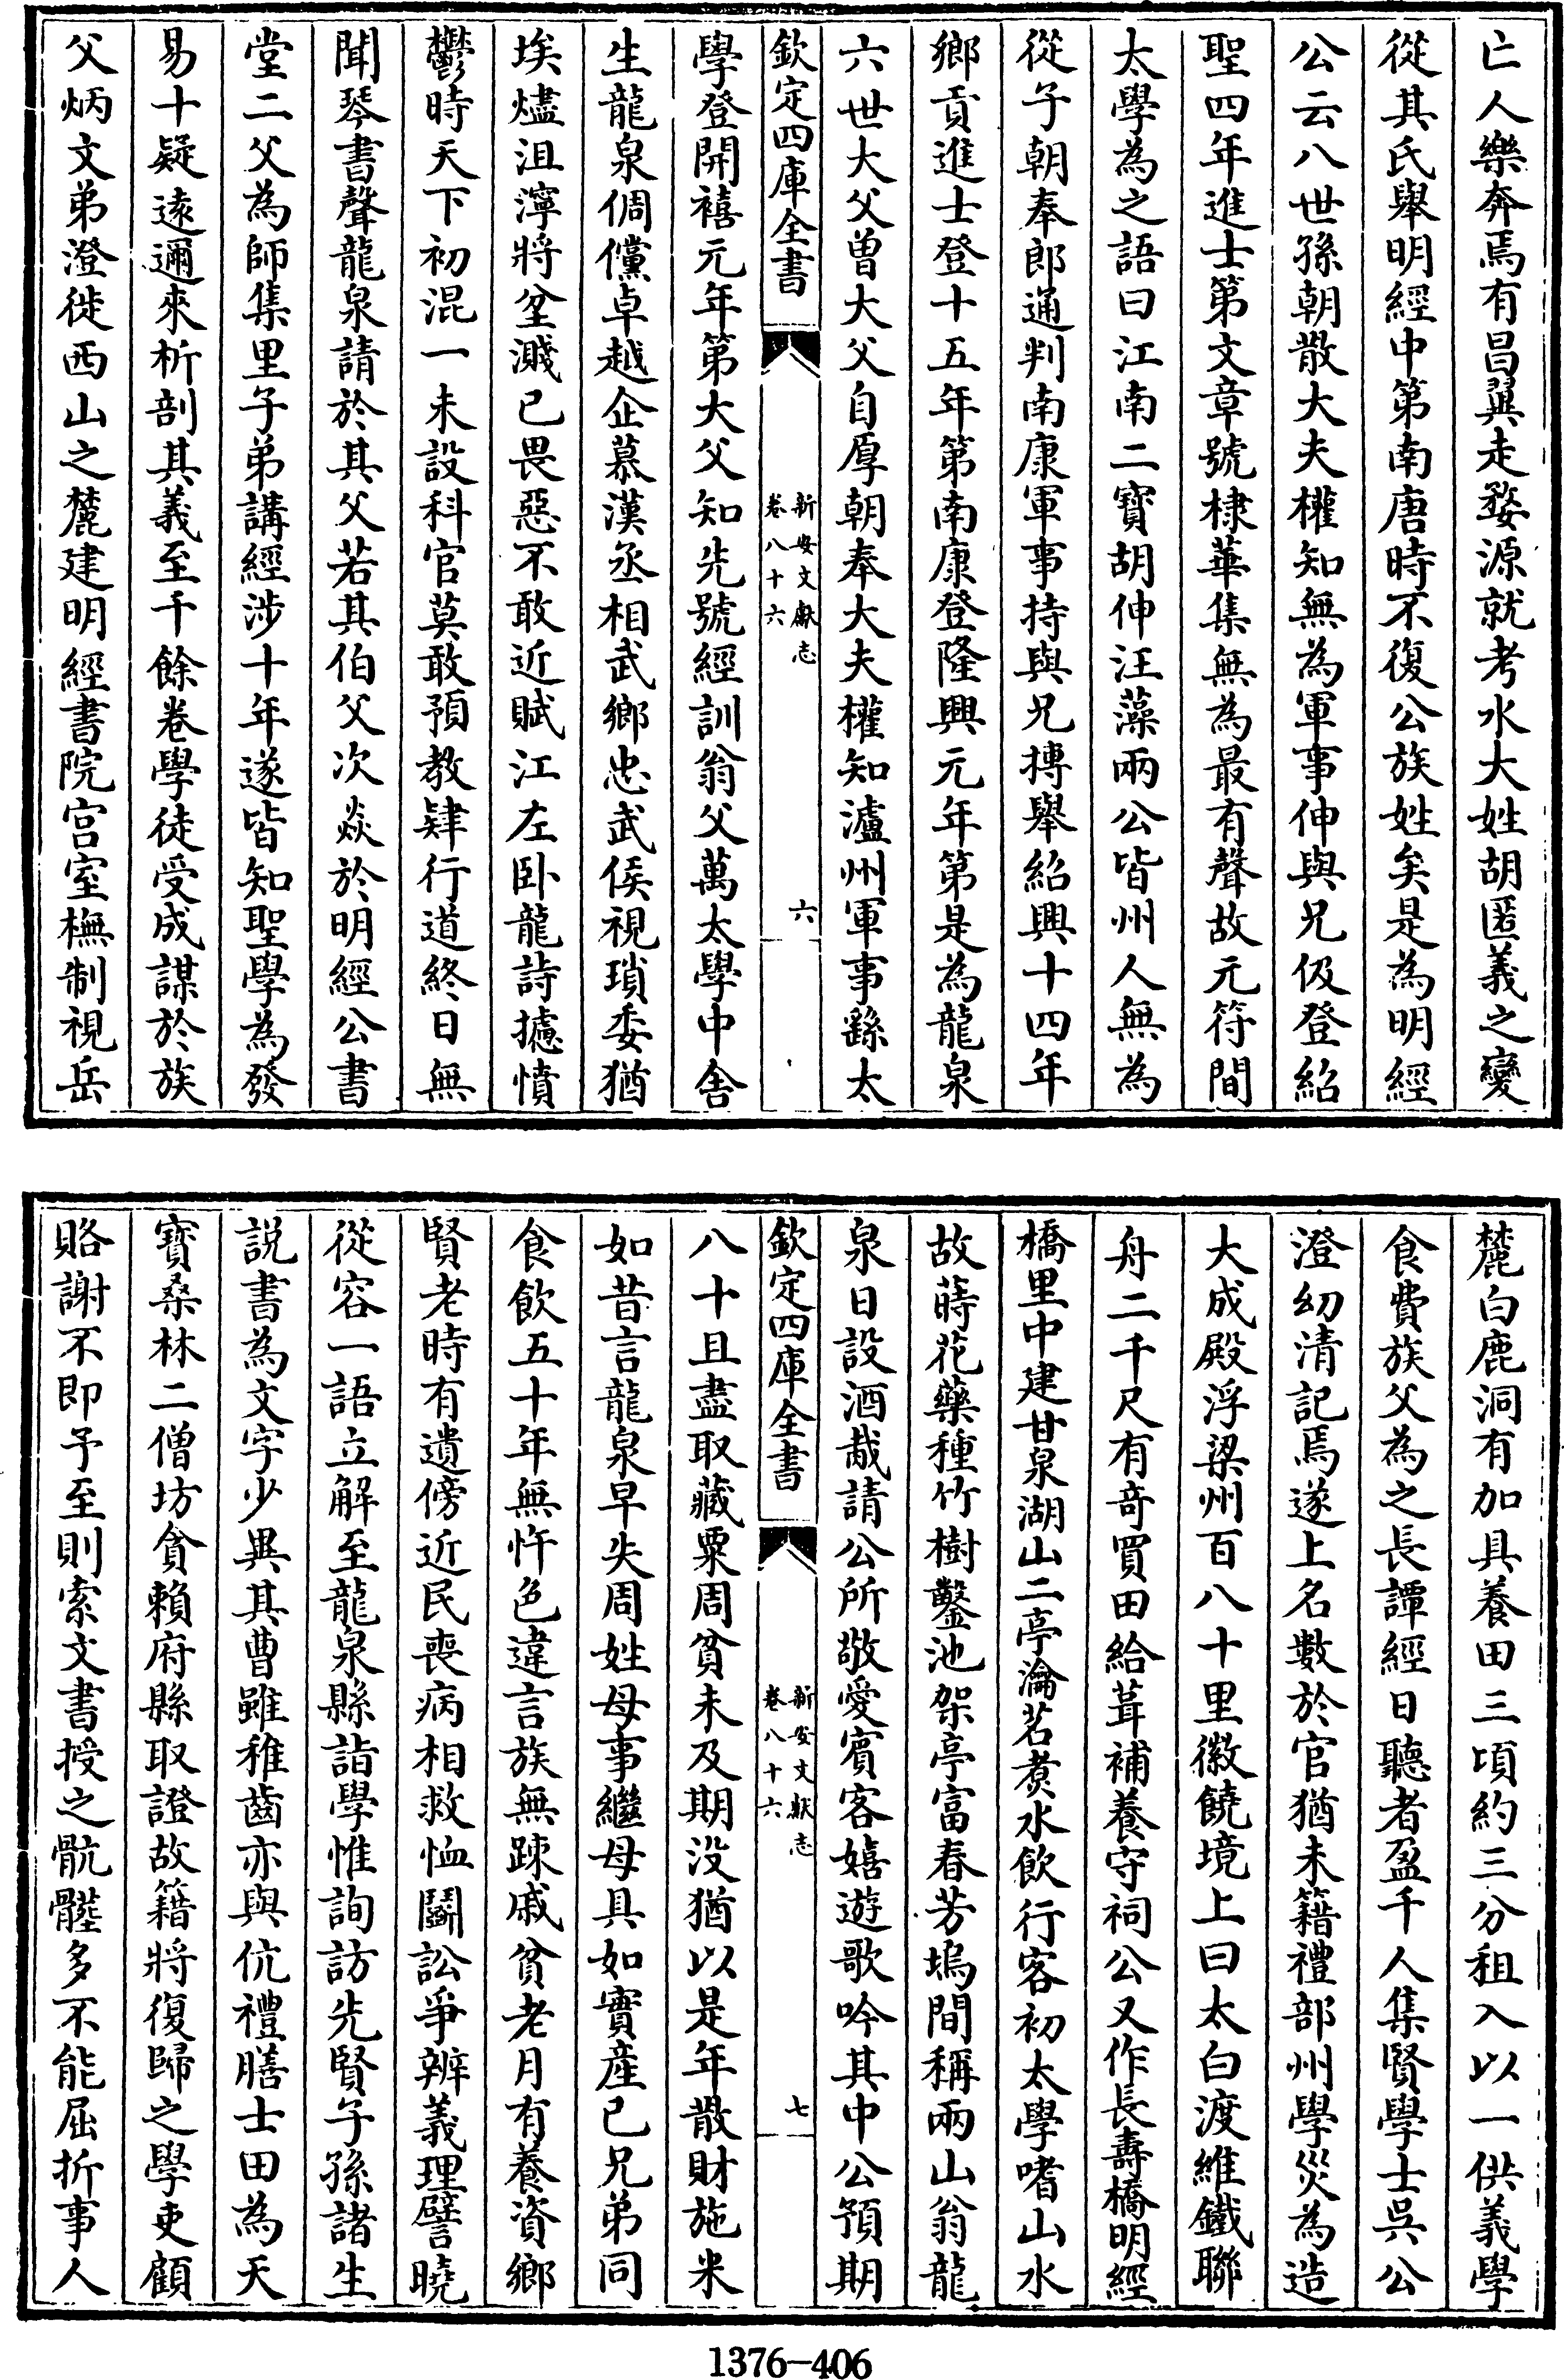 亡人樂奔焉有昌翼走婺源就考水大姓胡匿義之變
從其氏舉明經中第南唐時不復公族姓矣是為明經
公云八世孫朝散大夫權知無為軍事伸與兄伋登紹
聖四年進士第文章號棣華集無為最有聲故元符間
太學為之語曰江南二寶胡伸汪藻兩公皆州人無為
從子朝奉郎通判南康軍事持與兄摶舉紹興十四年
鄉貢進士登十五年第南康登隆興元年第是為龍泉
六世大父曽大父自厚朝奉大夫權知瀘州軍事繇太
欽定四庫全書
新安文獻志
卷八十六
六
學登開禧元年第大父知先號經訓翁父萬太學中舍
生龍泉倜儻卓越企慕漢丞相武鄉忠武侯視瑣委猶
埃燼沮濘將坌濺已畏惡不敢近賦江左卧龍詩攄憤
鬱時天下初混一未設科官莫敢預教肄行道終日無
聞琴書聲龍泉請於其父若其伯父次焱於明經公書
堂二父為師集里子弟講經涉十年遂皆知聖學為發
易十疑逺邇來析剖其義至千餘卷學徒受成謀於族
父炳文弟澄徙西山之麓建明經書院宫室橅制視岳
麓白鹿洞有加具養田三頃約三分租入以一供義學
食費族父為之長譚經日聽者盈千人集賢學士吳公
澄幼清記焉遂上名數於官猶未籍禮部州學災為造
大成殿浮梁州百八十里徽饒境上曰太白渡維鐵聯
舟二千尺有奇買田給葺補養守祠公又作長壽橋明經
橋里中建甘泉湖山二亭瀹茗煑水飲行客初太學嗜山水
故蒔花藥種竹樹鑿池架亭富春芳塢間稱兩山翁龍
泉日設酒胾請公所敬愛賓客嬉遊歌吟其中公預期
欽定四庫全書
新安文獻志
卷八十六
七
八十且盡取藏粟周貧未及期没猶以是年散財施米
如昔言龍泉早失周姓母事繼母具如實産已兄弟同
食飲五十年無忤色違言族無踈戚貧老月有養資鄉
賢老時有遺傍近民喪病相救恤鬬訟爭辨義理譬曉
從容一語立解至龍泉縣詣學惟詢訪先賢子孫諸生
說書為文字少異其曹雖稚齒亦與伉禮膳士田為天
寶桑林二僧坊貪賴府縣取證故籍將復歸之學吏顧
賂謝不即予至則索文書授之骯髒多不能屈折事人
1376-406